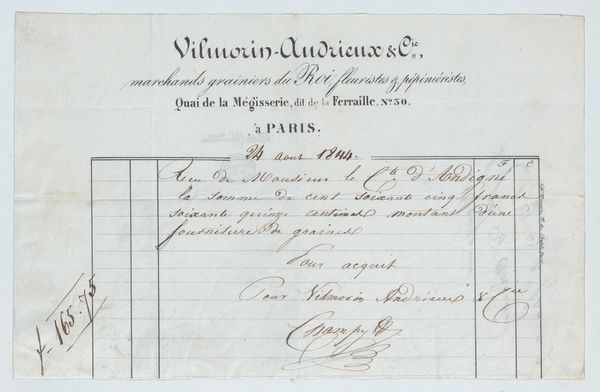 Vilmorin-Andrieux & Cie,
marchands grainiers du Roi, fleuristes & pépiniéristes,
Quai de la Mégisserie, dit de la Ferraille, No 30,
à PARIS.
24 aout 1844.
F. C.
Reçu de Monsieur le Cte d'Andigné
la somme de cent soixante cinq francs
soixante quinze centimes montant d'une
fourniture de graines
Pour acquit
Pour Vilmorin Andrieux & Cie
Champy
f- 165.75